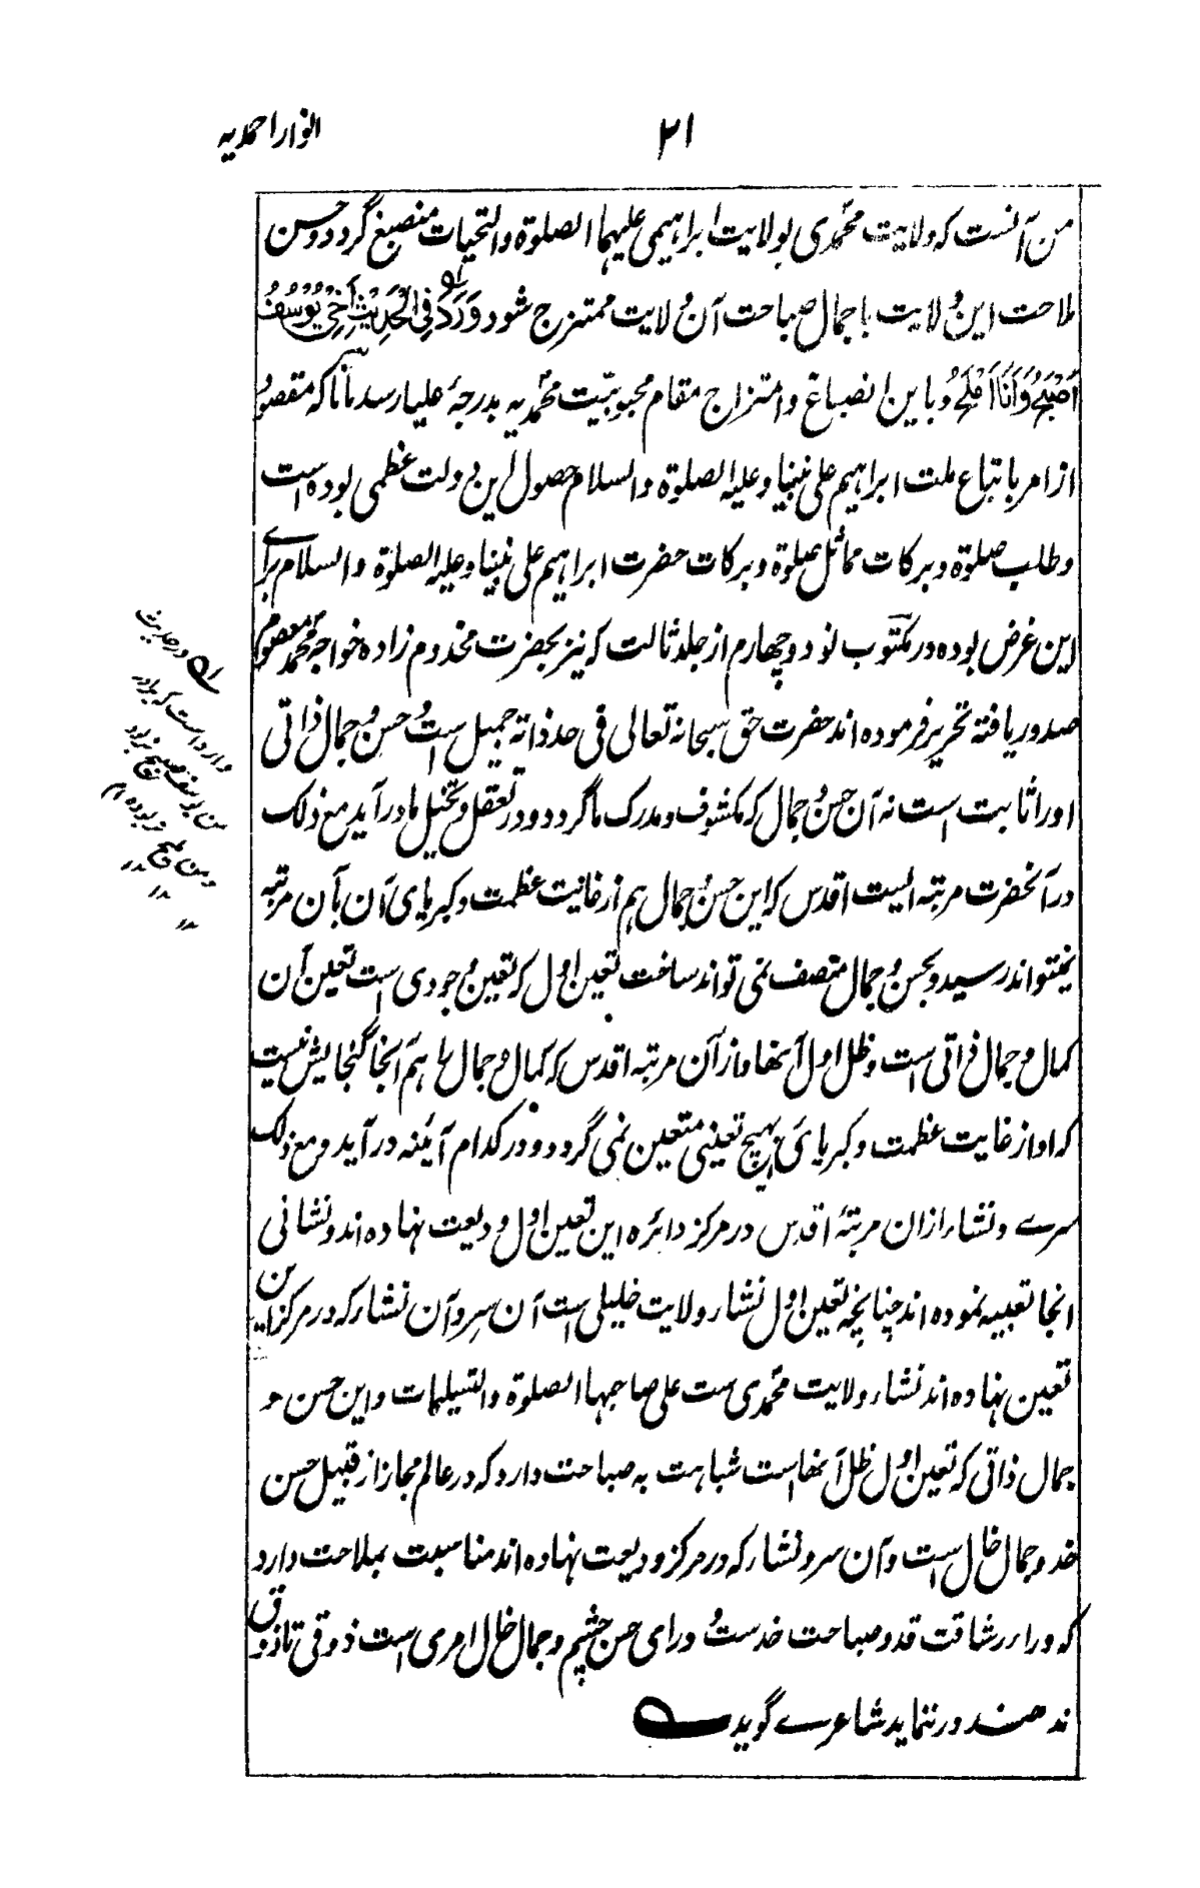 انوار احمدیه
۲۱
من آنست که ولایت محمّدی بولایت ابراهیمی علیهما الصلوة والتحیات منصبغ گردد و حسن
ملاحت این ولایت با جمال صباحت آن ولایت ممتزج شود وَرَدَ فِی الْحَدِیْثِ اَخِیْ یُوْسُفُ
اَصْبَحُ وَاَنَا اَمْلَحُ و باین انصباغ و امتزاج مقام محبوبیّت محمّدیه بدرجۀ علیا رسد مانا که مقصود
از امر باتباع ملت ابراهیم علی نبینا و علیه الصلوة والسلام حصول این دولت عظمی بوده است
و طلب صلوة و برکات مماثل صلوة و برکات حضرت ابراهیم علی نبینا و علیه الصلوة والسلام برای
این غرض بوده در مکتوب نود و چهارم از جلد ثالث که نیز بحضرت مخدوم زاده خواجه محمّد معصوم
صدور یافته تحریر فرموده اند حضرت حق سبحانه تعالی فی حد ذاته جمیل است و حسن و جمال ذاتی
او را ثابت است نه آن حسن و جمال که مکشوف و مدرک ما گردد و در تعقل و تخیل ما درآید مع ذلک
در آنحضرت مرتبه ایست اقدس که این حسن و جمال هم از غایت عظمت و کبریای آن بآن مرتبه
نمیتواند رسید و بحسن و جمال متصف نمی تواند ساخت تعین اول که تعین وجودی است تعین آن
کمال و جمال ذاتی است و ظل اول آنها و از آن مرتبه اقدس که کمال و جمال را هم آنجا گنجایش نیست
که او از غایت عظمت و کبریائی بهیچ تعینی متعین نمی گردد و در کدام آئینه درآید و مع ذلک
سرے و نشاء ازان مرتبۀ اقدس در مرکز دائره این تعین اول ودیعت نهاده اند و نشانی
انجا تعبیه نموده اند چنانچه تعین اول نشاء ولایت خلیلی است آن سِر و آن نشاء که در مرکز این
تعین نهاده اند نشاء ولایت محمّدی ست علی صاحبها الصلوة والتسلیمات و این حسن و
جمال ذاتی که تعین اول ظل آنهاست شباهت به صباحت دارد که در عالم مجاز از قبیل حسن
خد و جمال خال است و آن سر و نشاء که در مرکز ودیعت نهاده اند مناسبت بملاحت دارد
که وراء رشاقت قد و صباحت خدست و ورای حسن چشم و جمال خال امری است ذوقی تا ذوق
ند هند در نماید شاعرے گوید
له در حدیث
وارد است که برادر
من یوسف صبیح بود
و من ملیح
۱۲